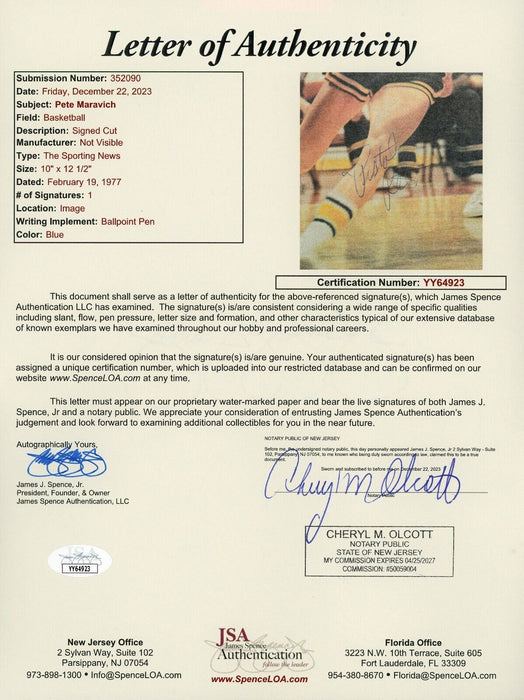 Letter of Authenticity
Submission Number: 352090
Date: Friday, December 22, 2023
Subject: Pete Maravich
Field: Basketball
Description: Signed Cut
Manufacturer: Not Visible
Type: The Sporting News
Size: 10" x 12 1/2"
Dated: February 19, 1977
# of Signatures: 1
Location: Image
Writing Implement: Ballpoint Pen
Color: Blue
Certification Number: YY64923
This document shall serve as a letter of authenticity for the above-referenced signature(s), which James Spence
Authentication LLC has examined. The signature(s) is/are consistent considering a wide range of specific qualities
including slant, flow, pen pressure, letter size and formation, and other characteristics typical of our extensive database
of known exemplars we have examined throughout our hobby and professional careers.
It is our considered opinion that the signature(s) is/are genuine. Your authenticated signature(s) has been
assigned a unique certification number, which is uploaded into our restricted database and can be confirmed on our
website www.SpenceLOA.com at any time.
This letter must appear on our proprietary water-marked paper and bear the live signatures of both James J.
Spence, Jr and a notary public. We appreciate your consideration of entrusting James Spence Authentication's
judgement and look forward to examining additional collectibles for you in the near future.
Autographically Yours,
James J. Spence, Jr.
President, Founder, & Owner
James Spence Authentication, LLC
NOTARY PUBLIC OF NEW JERSEY
Before me, the undersigned notary public, this day personally appeared James J. Spence, Jr 2 Sylvan Way - Suite
102, Parsippany, NJ 07054, to me known who being duly sworn according to law, claimed this to be a true
document.
Sworn and subscribed to before me on December 22, 2023
Cheryl M Olcott
Notary Public
CHERYL M. OLCOTT
NOTARY PUBLIC
STATE OF NEW JERSEY
MY COMMISSION EXPIRES 04/25/2027
COMMISSION: #50059004
YY64923
New Jersey Office
2 Sylvan Way, Suite 102
Parsippany, NJ 07054
973-898-1300 • Info@SpenceLOA.com
JSA
James Spence
Authentication
follow the leader
www.SpenceLOA.com
Florida Office
3223 N.W. 10th Terrace, Suite 605
Fort Lauderdale, FL 33309
954-380-8670 • Florida@SpenceLOA.com